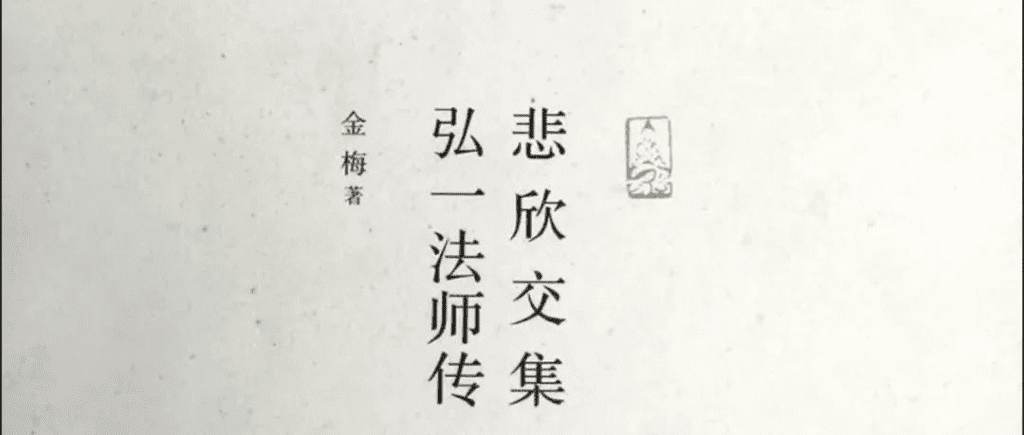 悲欣交集
弘一法师传
金梅著